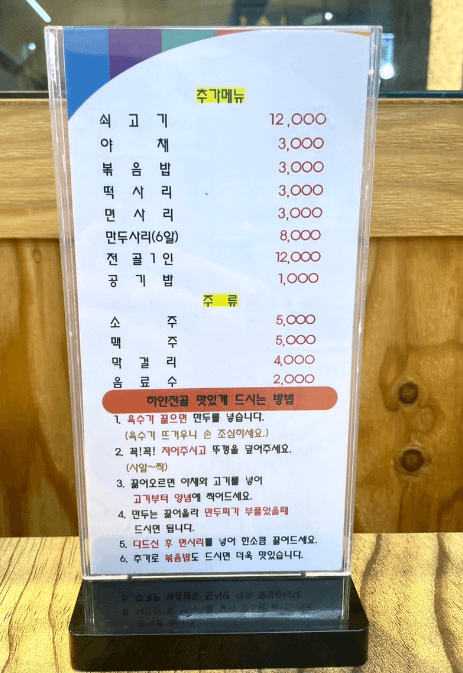 추가메뉴
쇠 고 기 12,000
야 채 3,000
볶 음 밥 3,000
떡 사 리 3,000
면 사 리 3,000
만두사리(6알) 8,000
전 골 1 인 12,000
공 기 밥 1,000
주 류
소 주 5,000
맥 주 5,000
막 걸 리 4,000
음 료 수 2,000
하얀전골 맛있게 드시는 방법
1. 육수가 끓으면 만두를 넣습니다.
(육수가 뜨거우니 손 조심하세요.)
2. 꼭!꼭! 저어주시고 뚜껑을 덮어주세요.
(사알~짝)
3. 끓어오르면 야채와 고기를 넣어
고기부터 양념에 찍어드세요.
4. 만두는 끓어올라 만두피가 부풀었을때
드시면 됩니다.
5. 다드신 후 면사리를 넣어 한소큼 끓여드세요.
6. 추가로 볶음밥도 드시면 더욱 맛있습니다.